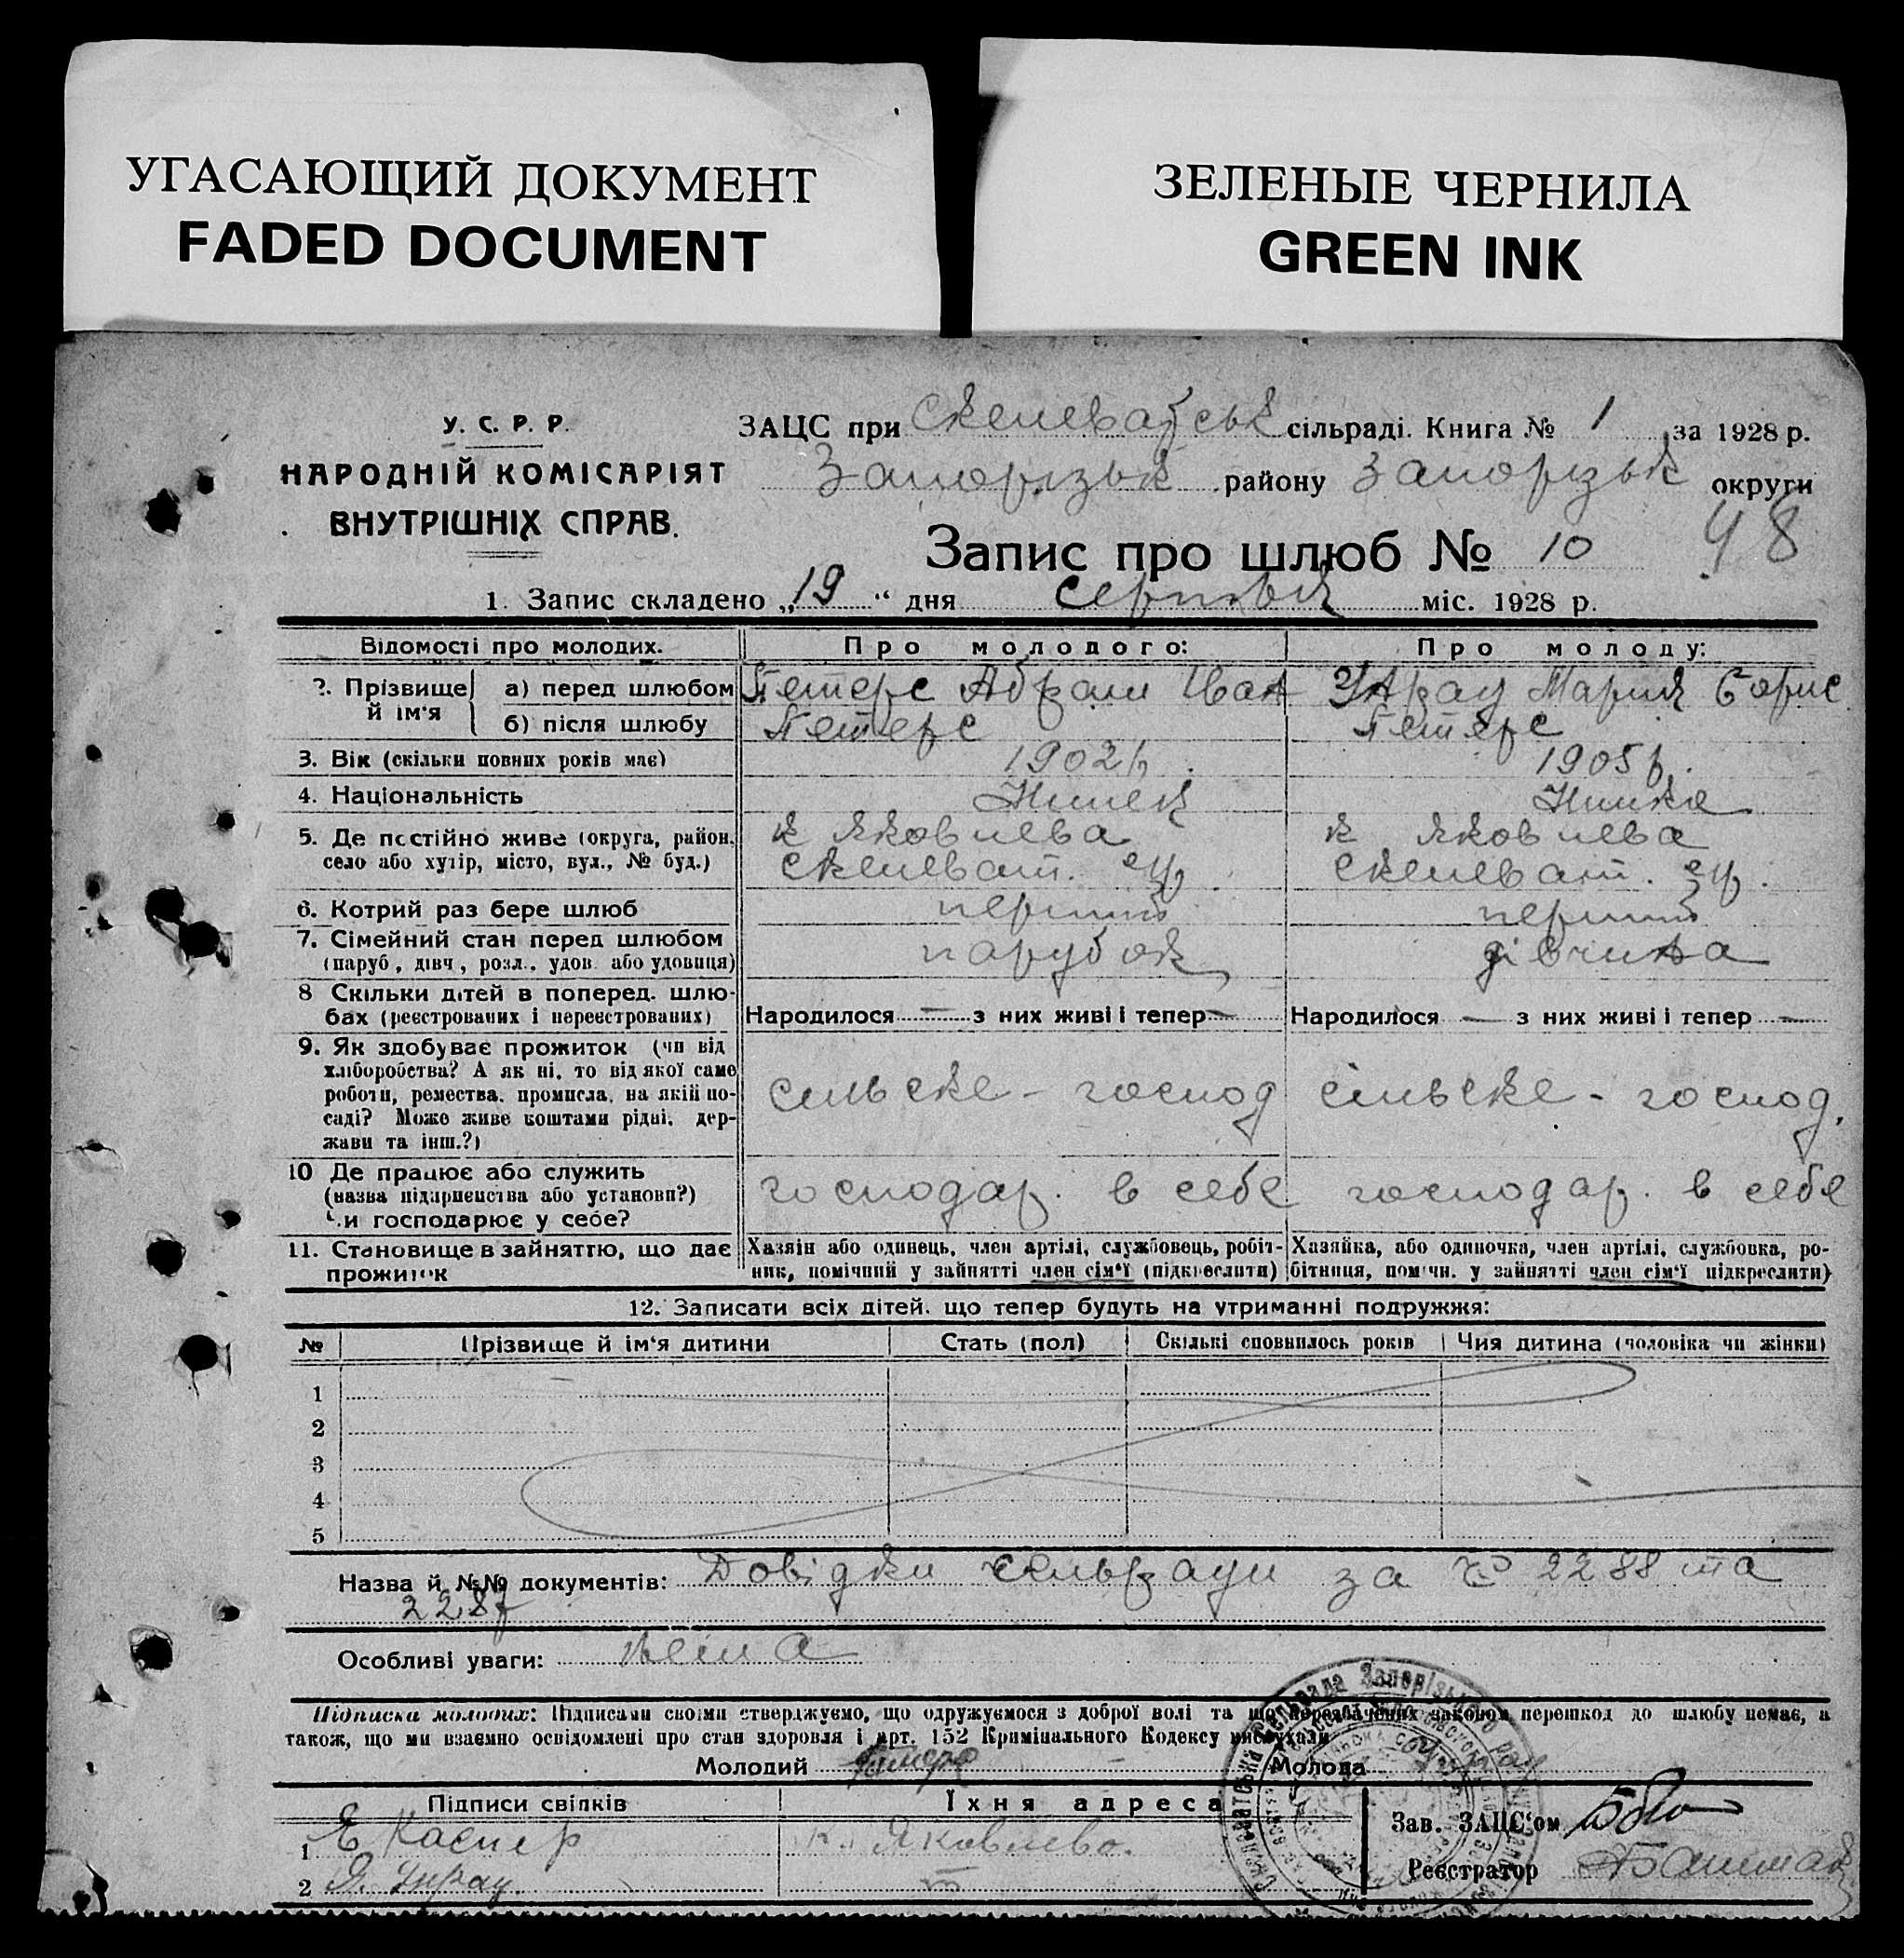 УГАСАЮЩИЙ ДОКУМЕНТ
FADED DOCUMENT
ЗЕЛЕНЫЕ ЧЕРНИЛА
GREEN INK
У. С. Р. Р.
НАРОДНІЙ КОМІСАРІЯТ
ВНУТРІШНІХ СПРАВ.
ЗАЦС при Скелеватськ сільраді. Книга № 1 за 1928 р.
Запорізьк району Запорізьк округи
Запис про шлюб № 10 48
1. Запис складено „19“ дня серпня міс. 1928 р.
Відомості про молодих. Про молодого: Про молоду:
2. Прізвище й ім'я а) перед шлюбом Петерс Абрам Іван Унрау Марія Борис
б) після шлюбу Петерс Петерс
3. Вік (скільки повних років має) 1902 р. 1905 р.
4. Національність Німець Німка
5. Де постійно живе (округа, район, к Яковлева к Яковлева
село або хутір, місто, вул., № буд.) Скелеват. с/р. Скелеват. с/р.
6. Котрий раз бере шлюб перший перший
7. Сімейний стан перед шлюбом парубок дівчина
(паруб., дівч., розл., удов. або удовиця)
8 Скільки дітей в поперед. шлю-
бах (реєстрованих і нереєстрованих) Народилося — з них живі і тепер — Народилося — з них живі і тепер —
9. Як здобуває прожиток (чи від
хліборобства? А як ні, то від якої саме
роботи, ремества, промисла, на якій по- сильске - господ сільске - господ.
саді? Може живе коштами рідні, дер-
жави та інш.?)
10 Де працює або служить
(назва підприємства або установи?) господар. в себе господар. в себе
Чи господарює у себе?
11. Становище в зайняттю, що дає Хазяїн або одинець, член артілі, службовець, робіт- Хазяйка, або одиночка, член артілі, службовка, ро-
прожиток ник, помічний у зайнятті член сім'ї (підкреслити) бітниця, помічн. у зайнятті член сім'ї підкреслити)
12. Записати всіх дітей, що тепер будуть на утриманні подружжя:
№ Прізвище й ім'я дитини Стать (пол) Скількі сповнилось років Чия дитина (чоловіка чи жінки)
1
2
3
4
5
Назва й №№ документів: Довідки сельради за № 2288 та
2287
Особливі уваги: нема
Підписка молодих: Підписами своїми стверджуємо, що одружуємося з доброї волі та що передбачених законом перешкод до шлюбу немає, а
також, що ми взаємно освідомлені про стан здоровля і арт. 152 Кримінального Кодексу вислухали
Молодий Петерс Молода
Підписи свідків Їхня адреса
1 Е Каспер к. Яковлево.
2 Я. Унрау.
Зав. ЗАЦС'ом
Реєстратор